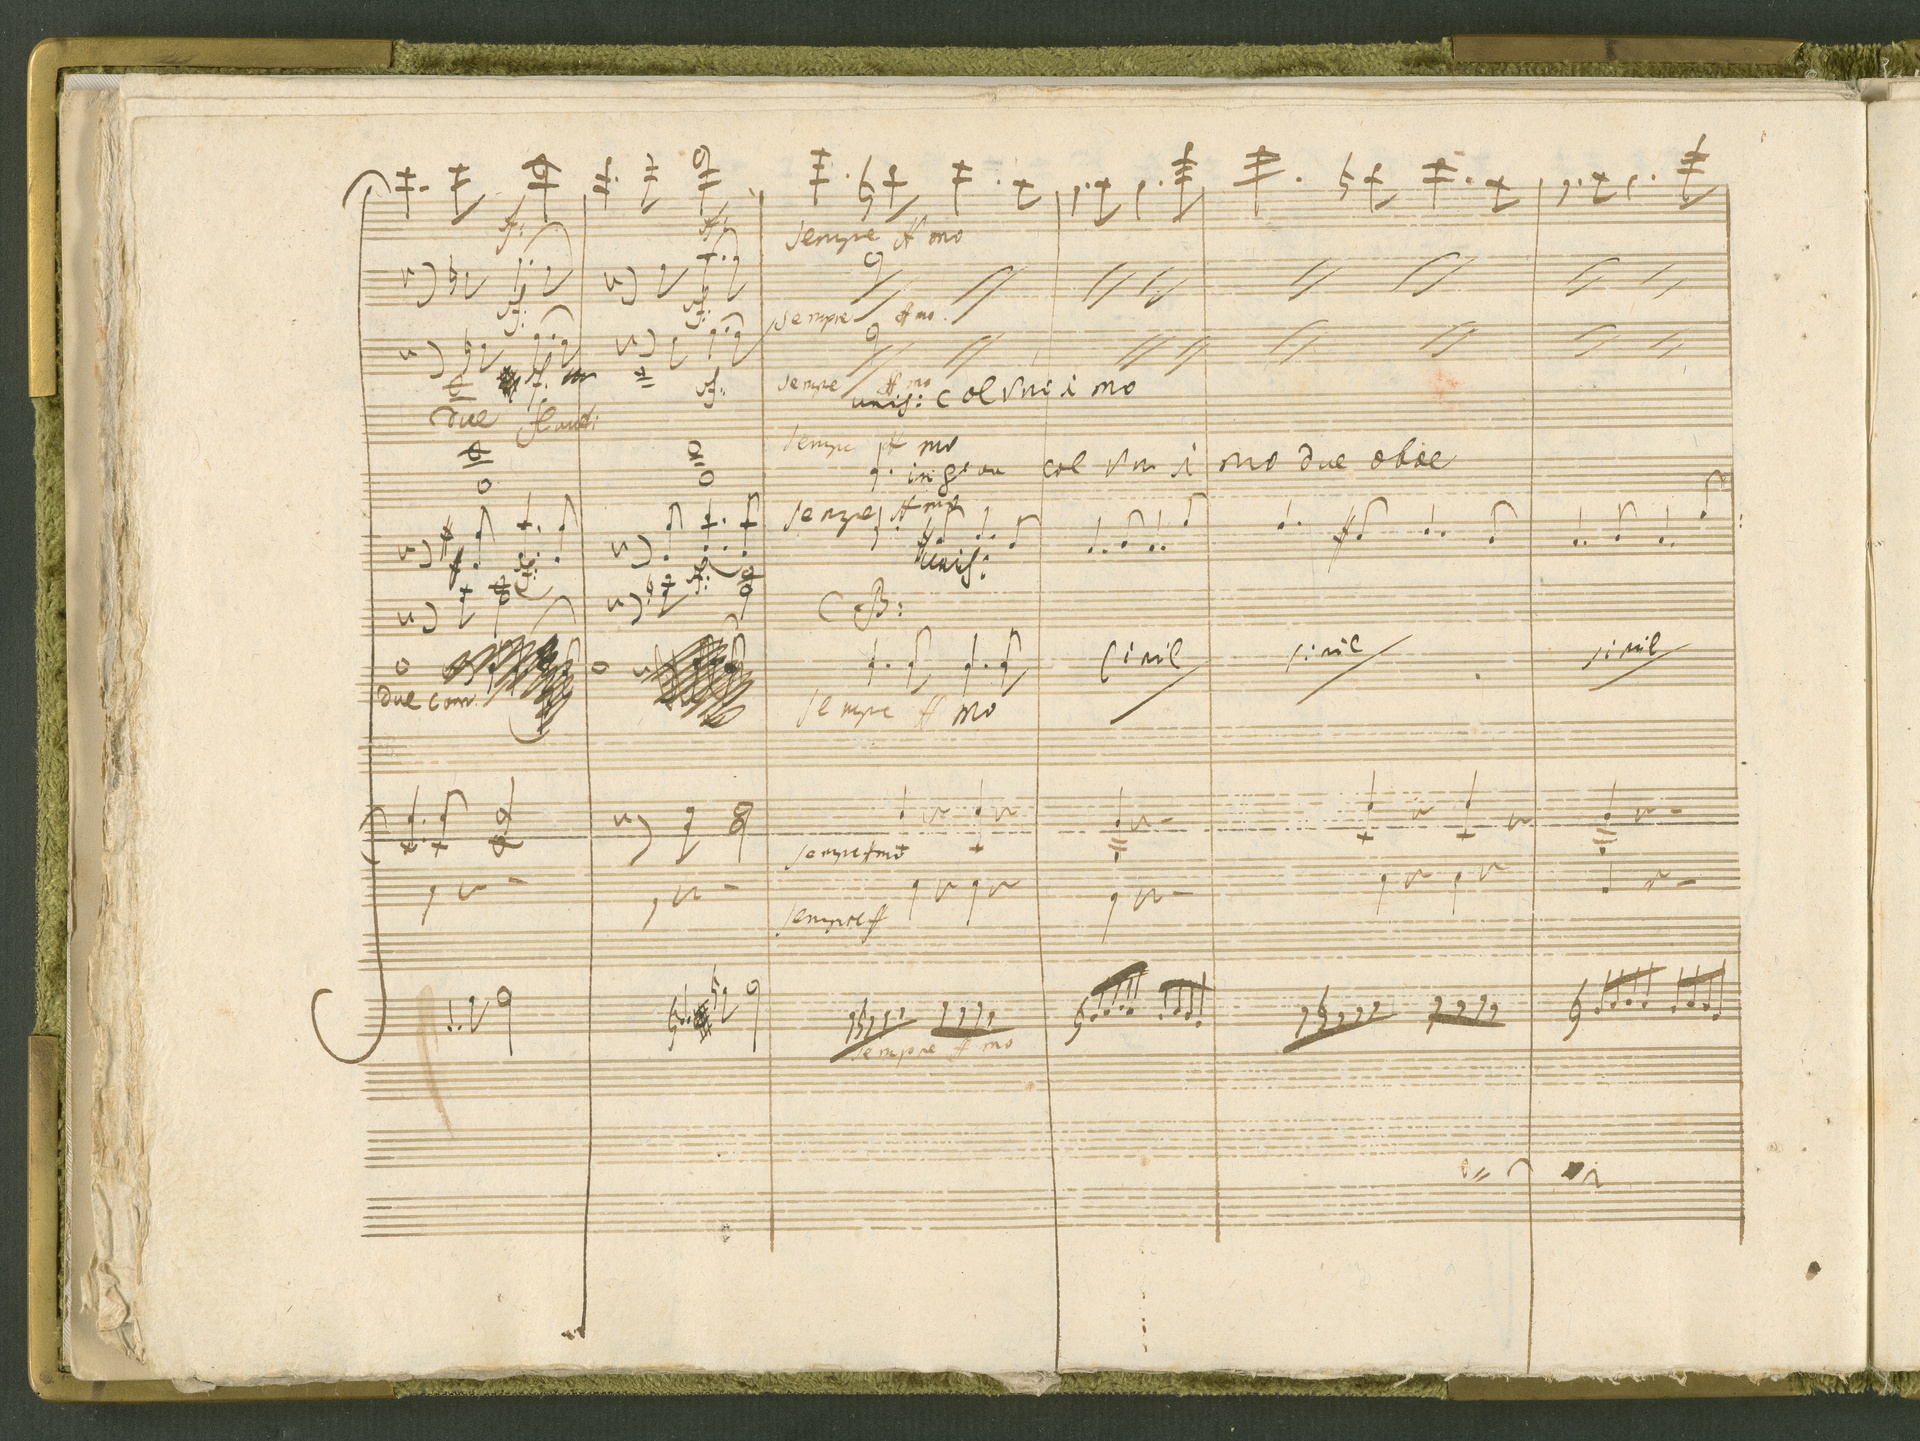 sf: sf: Sempre ff mo
sf: sf: Sempre ff mo.
sf. sf: Sempre ff mo
unis: col Vni i mo
due flauti
Sempre ff mo
in 8va col Vni i mo due oboe
Sempre ff mo
sf: sf: unis:
CB:
simil simil simil
due corni
Sempre ff mo
sempre ff mo
sempre ff
sempre ff mo